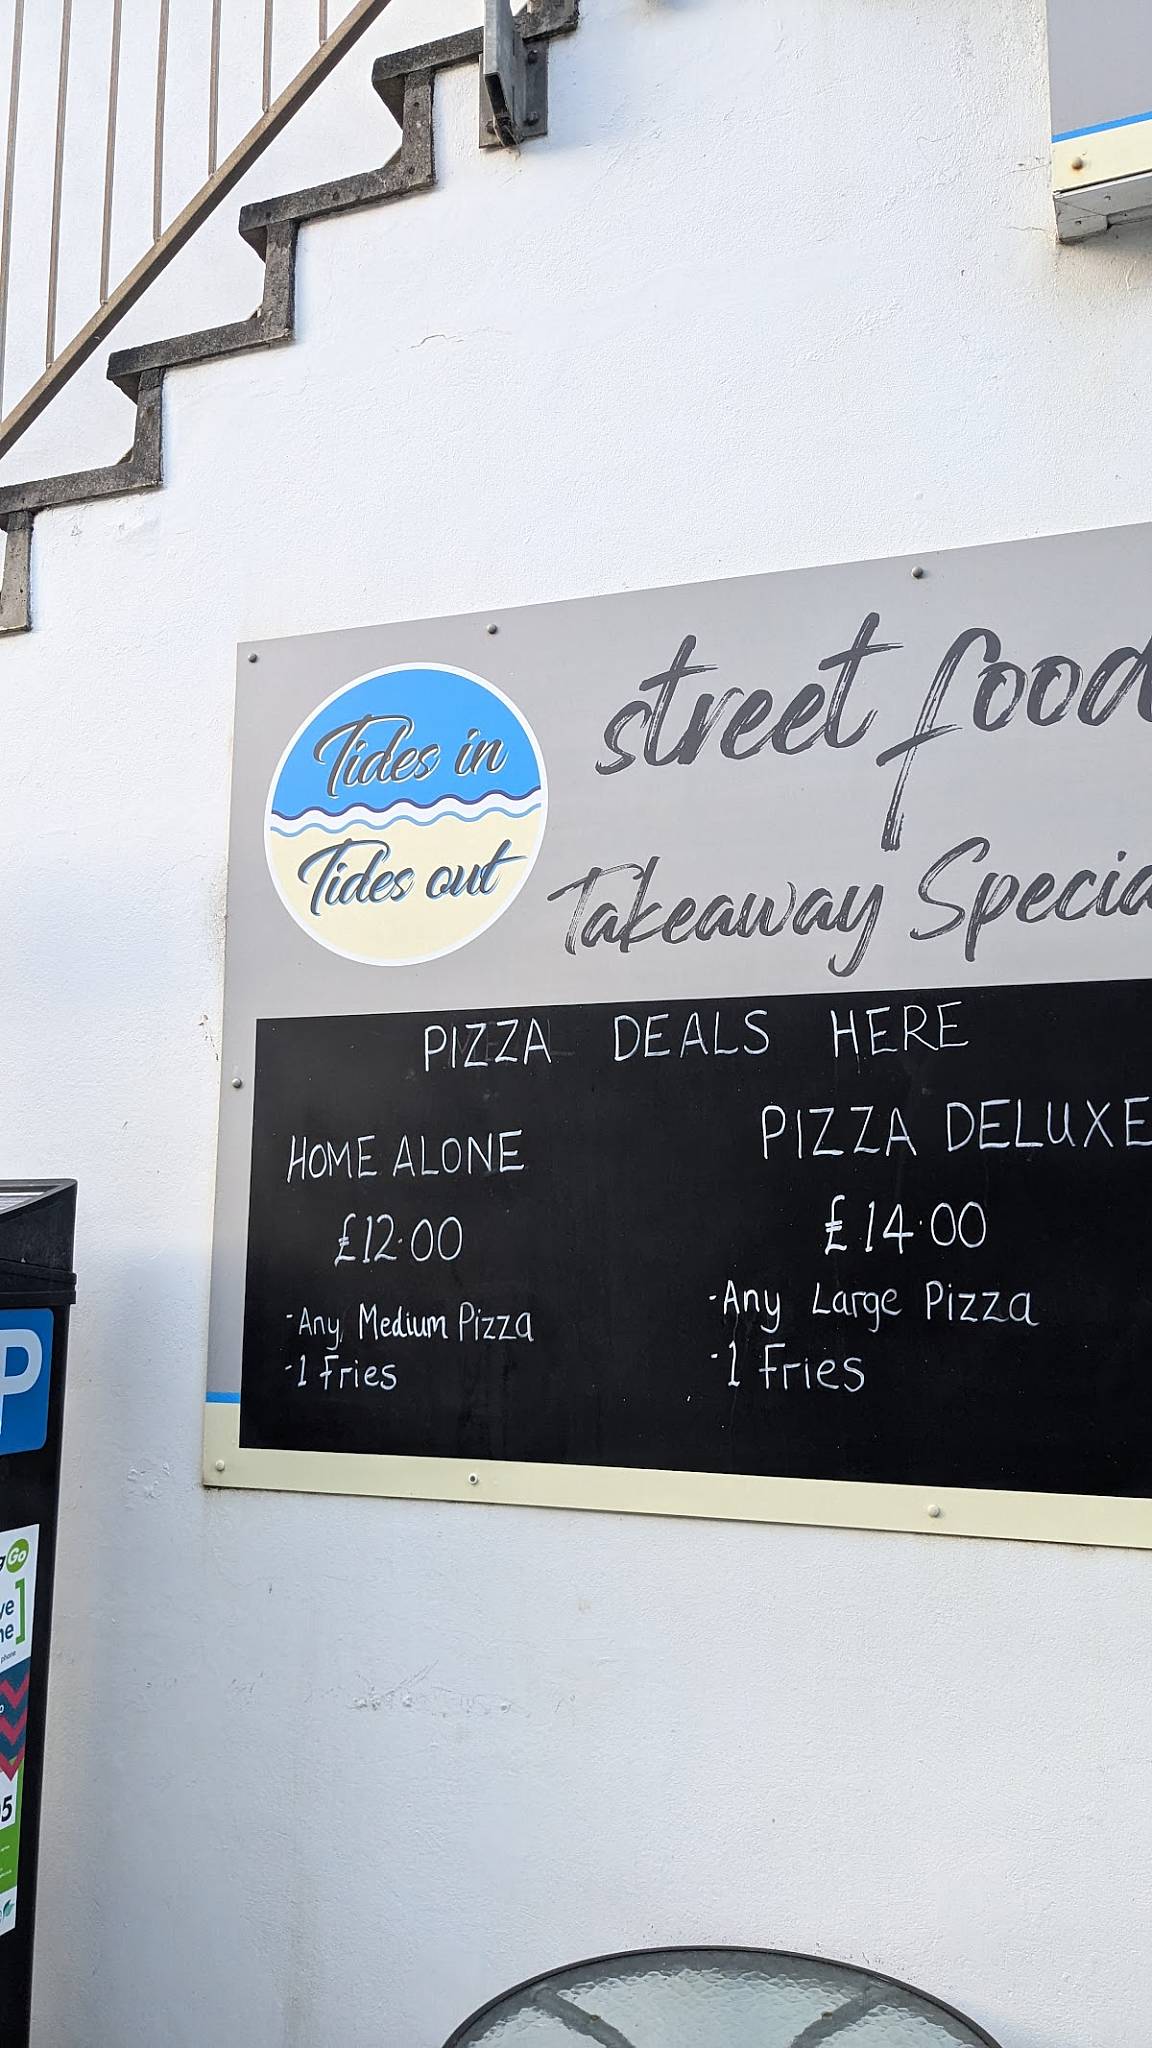 Tides in
Tides out
street food
Takeaway Specia
PIZZA DEALS HERE
HOME ALONE
£12.00
-Any Medium Pizza
-1 Fries
PIZZA DELUXE
£14.00
-Any Large Pizza
-1 Fries
P
Go
phone